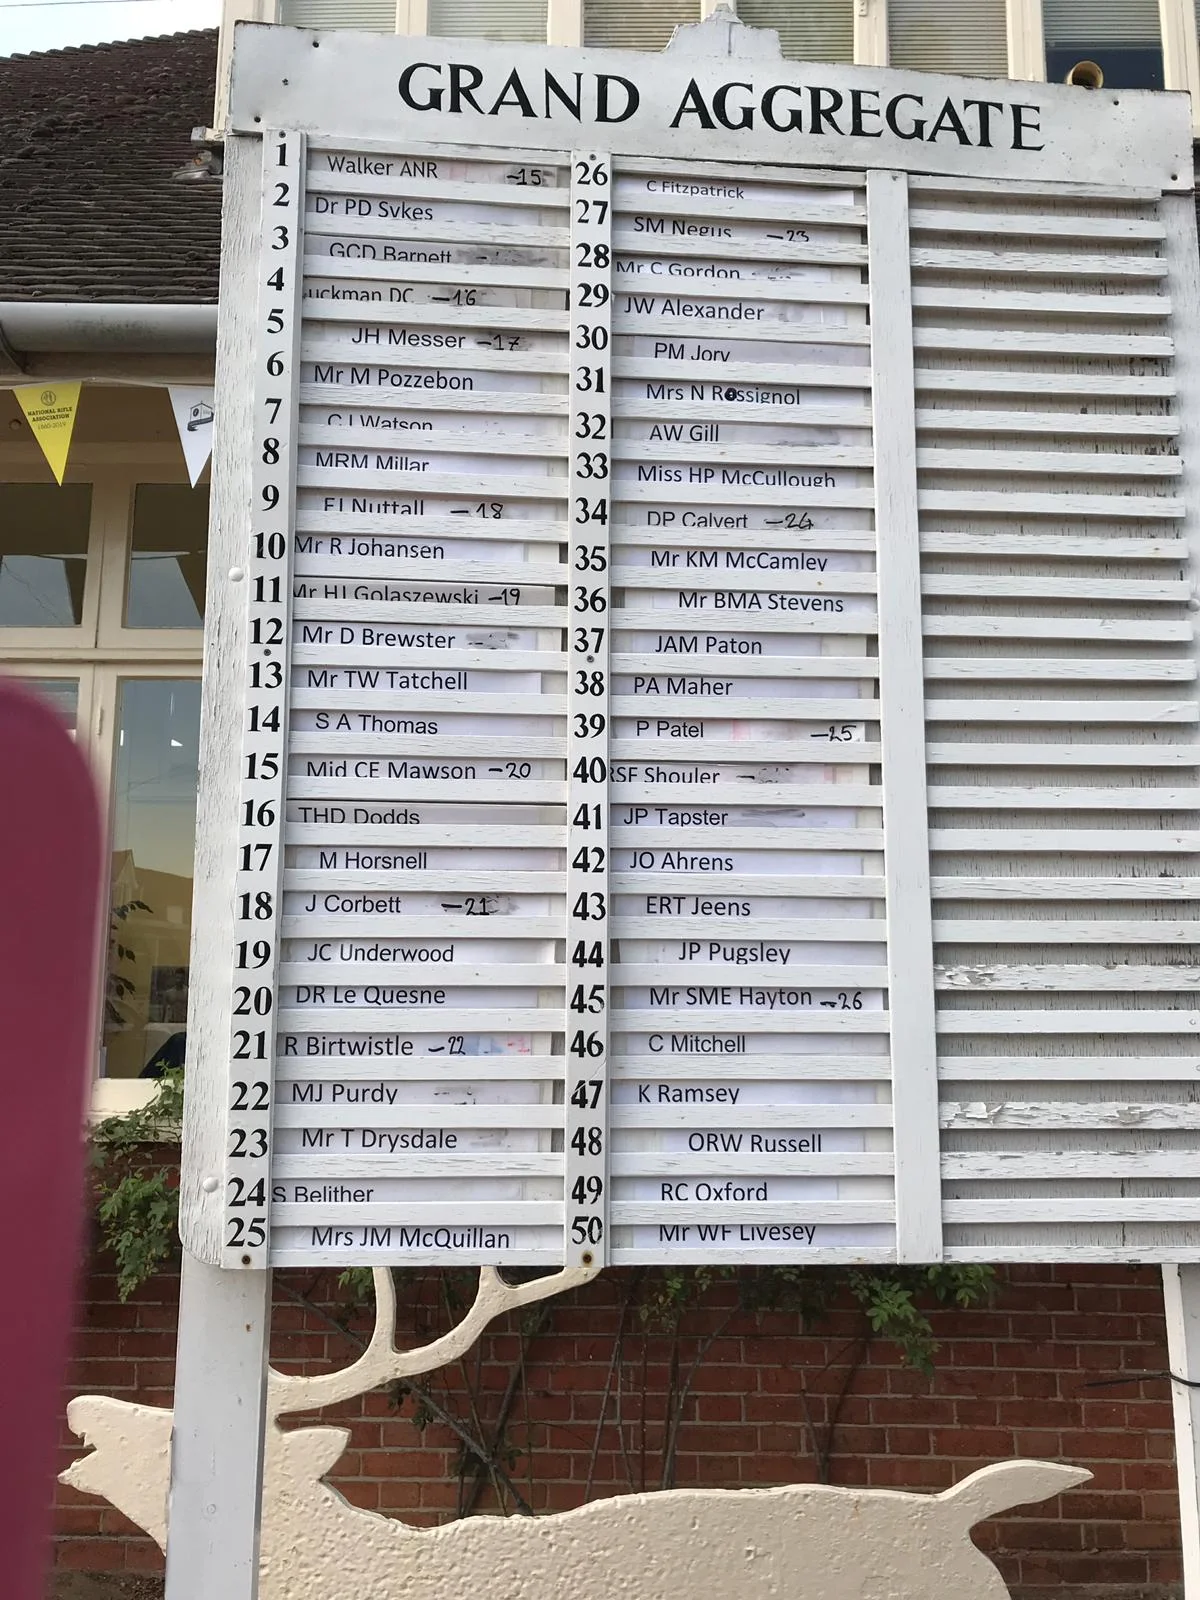 GRAND AGGREGATE
1 Walker ANR -15
2 Dr PD Sykes
3 GCD Barnett
4 uckman DC -16
5 JH Messer -17
6 Mr M Pozzebon
7 CJ Watson
8 MRM Millar
9 EJ Nuttall -18
10 Mr R Johansen
11 Mr HJ Golaszewski -19
12 Mr D Brewster
13 Mr TW Tatchell
14 S A Thomas
15 Mid CE Mawson -20
16 THD Dodds
17 M Horsnell
18 J Corbett -21
19 JC Underwood
20 DR Le Quesne
21 R Birtwistle -22
22 MJ Purdy
23 Mr T Drysdale
24 S Belither
25 Mrs JM McQuillan
26 C Fitzpatrick
27 SM Negus -23
28 Mr C Gordon
29 JW Alexander
30 PM Jory
31 Mrs N Rossignol
32 AW Gill
33 Miss HP McCullough
34 DP Calvert -24
35 Mr KM McCamley
36 Mr BMA Stevens
37 JAM Paton
38 PA Maher
39 P Patel -25
40 RSF Shouler
41 JP Tapster
42 JO Ahrens
43 ERT Jeens
44 JP Pugsley
45 Mr SME Hayton -26
46 C Mitchell
47 K Ramsey
48 ORW Russell
49 RC Oxford
50 Mr WF Livesey
NATIONAL RIFLE
ASSOCIATION
1860-2019